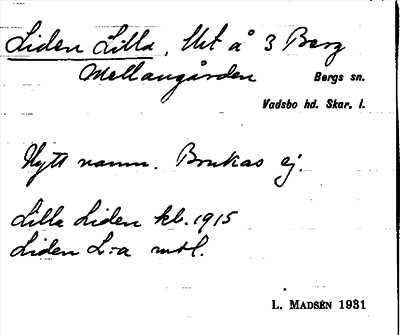 Liden Lilla, Utj å 3 Berg
Mellangården Bergs sn.
Vadsbo hd. Skar. l.
Nytt namn. Brukas ej.
Lilla Liden kb. 1915
Liden L:a mtl.
L. MADSÉN 1931